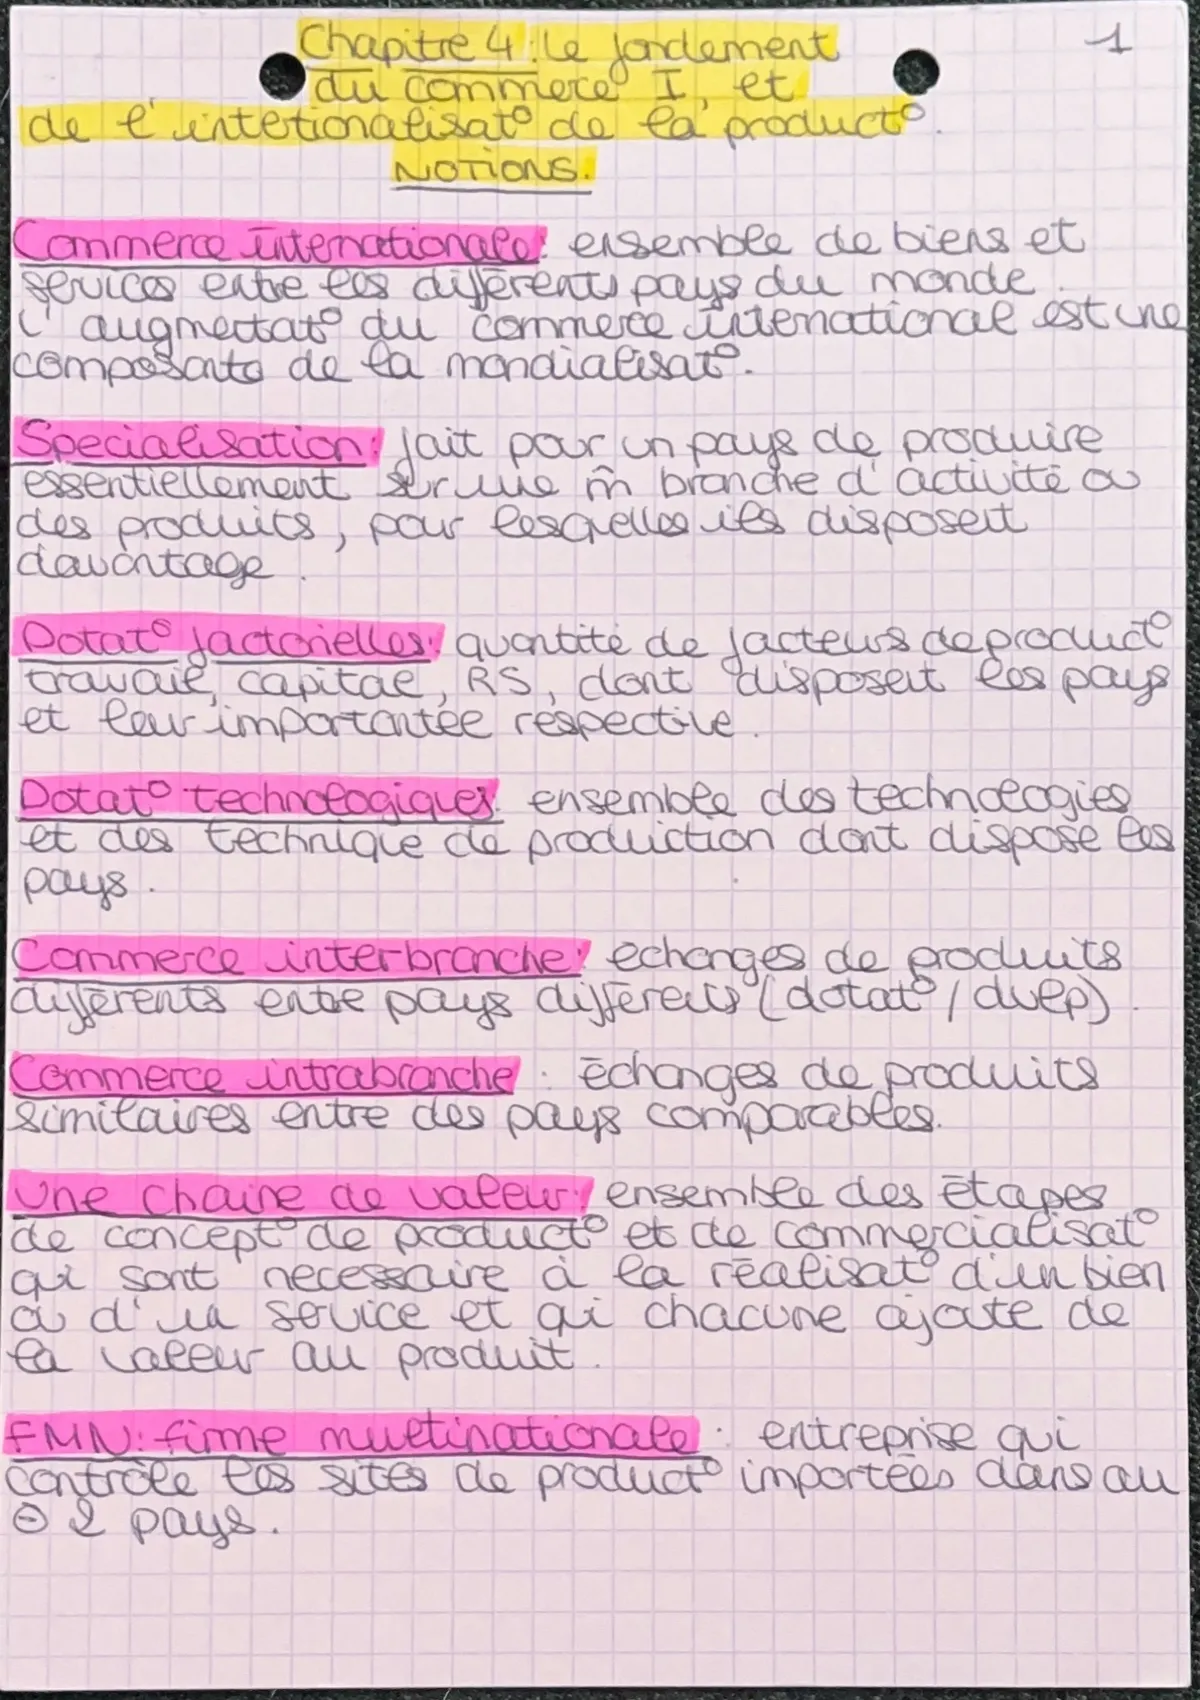 1
Chapitre 4: Le fondement
du commerce I, et
de l'intetionalisat° de la product°.
NOTIONS.
Commerce internationale: ensemble de biens et
services entre les différents pays du monde.
L'augmentat° du commerce international est une
composante de la mondialisat°.
Specialisation: fait pour un pays de produire
essentiellement sur une m̂ branche d'activité ou
des produits, pour lesquelles ils disposent
davantage.
Dotat° factorielles: quantité de facteurs de product°
travail, capital, RS, dont disposent les pays
et leur importantée respective.
Dotat° technologiques: ensemble des technologies
et des technique de production dont dispose les
pays.
Commerce interbranche: echanges de produits
différents entre pays différents (dotat° / dvlp).
Commerce intrabranche: échanges de produits
similaires entre des pays comparables.
Une chaine de valeur: ensemble des étapes
de concept° de product° et de commercialisat°
qui sont necessaire à la réalisat° d'un bien
ou d'un service et qui chacune ajoute de
la valeur au produit.
FMN: firme multinationale: entreprise qui
contrôle les sites de product° importées dans au
⊖ 2 pays.